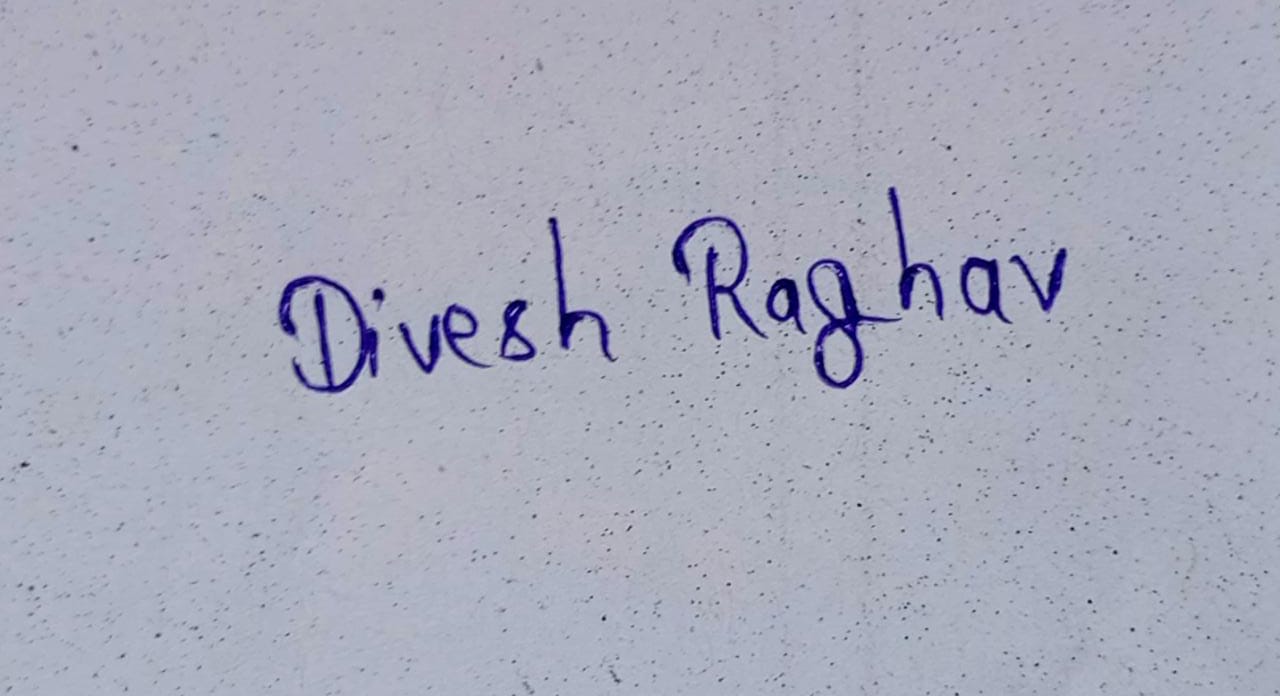 Divesh Raghav